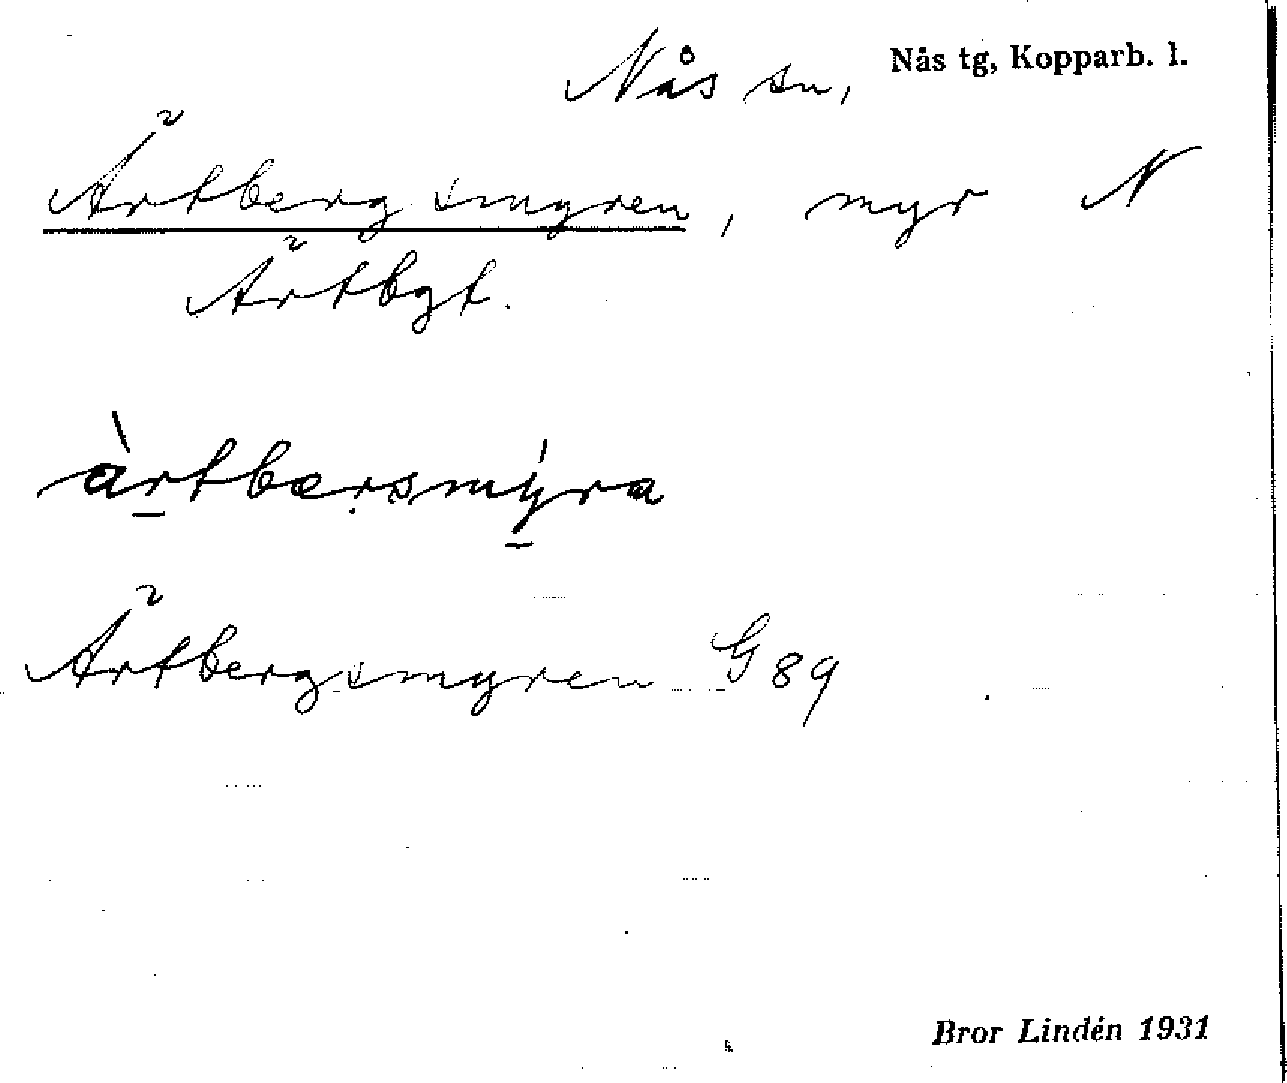 Nås sn, Nås tg, Kopparb. l.
Ärtbergsmyren, myr N
Ärtbgt.
àrtbærsmýra
Ärtbergsmyren G 89
Bror Lindén 1931